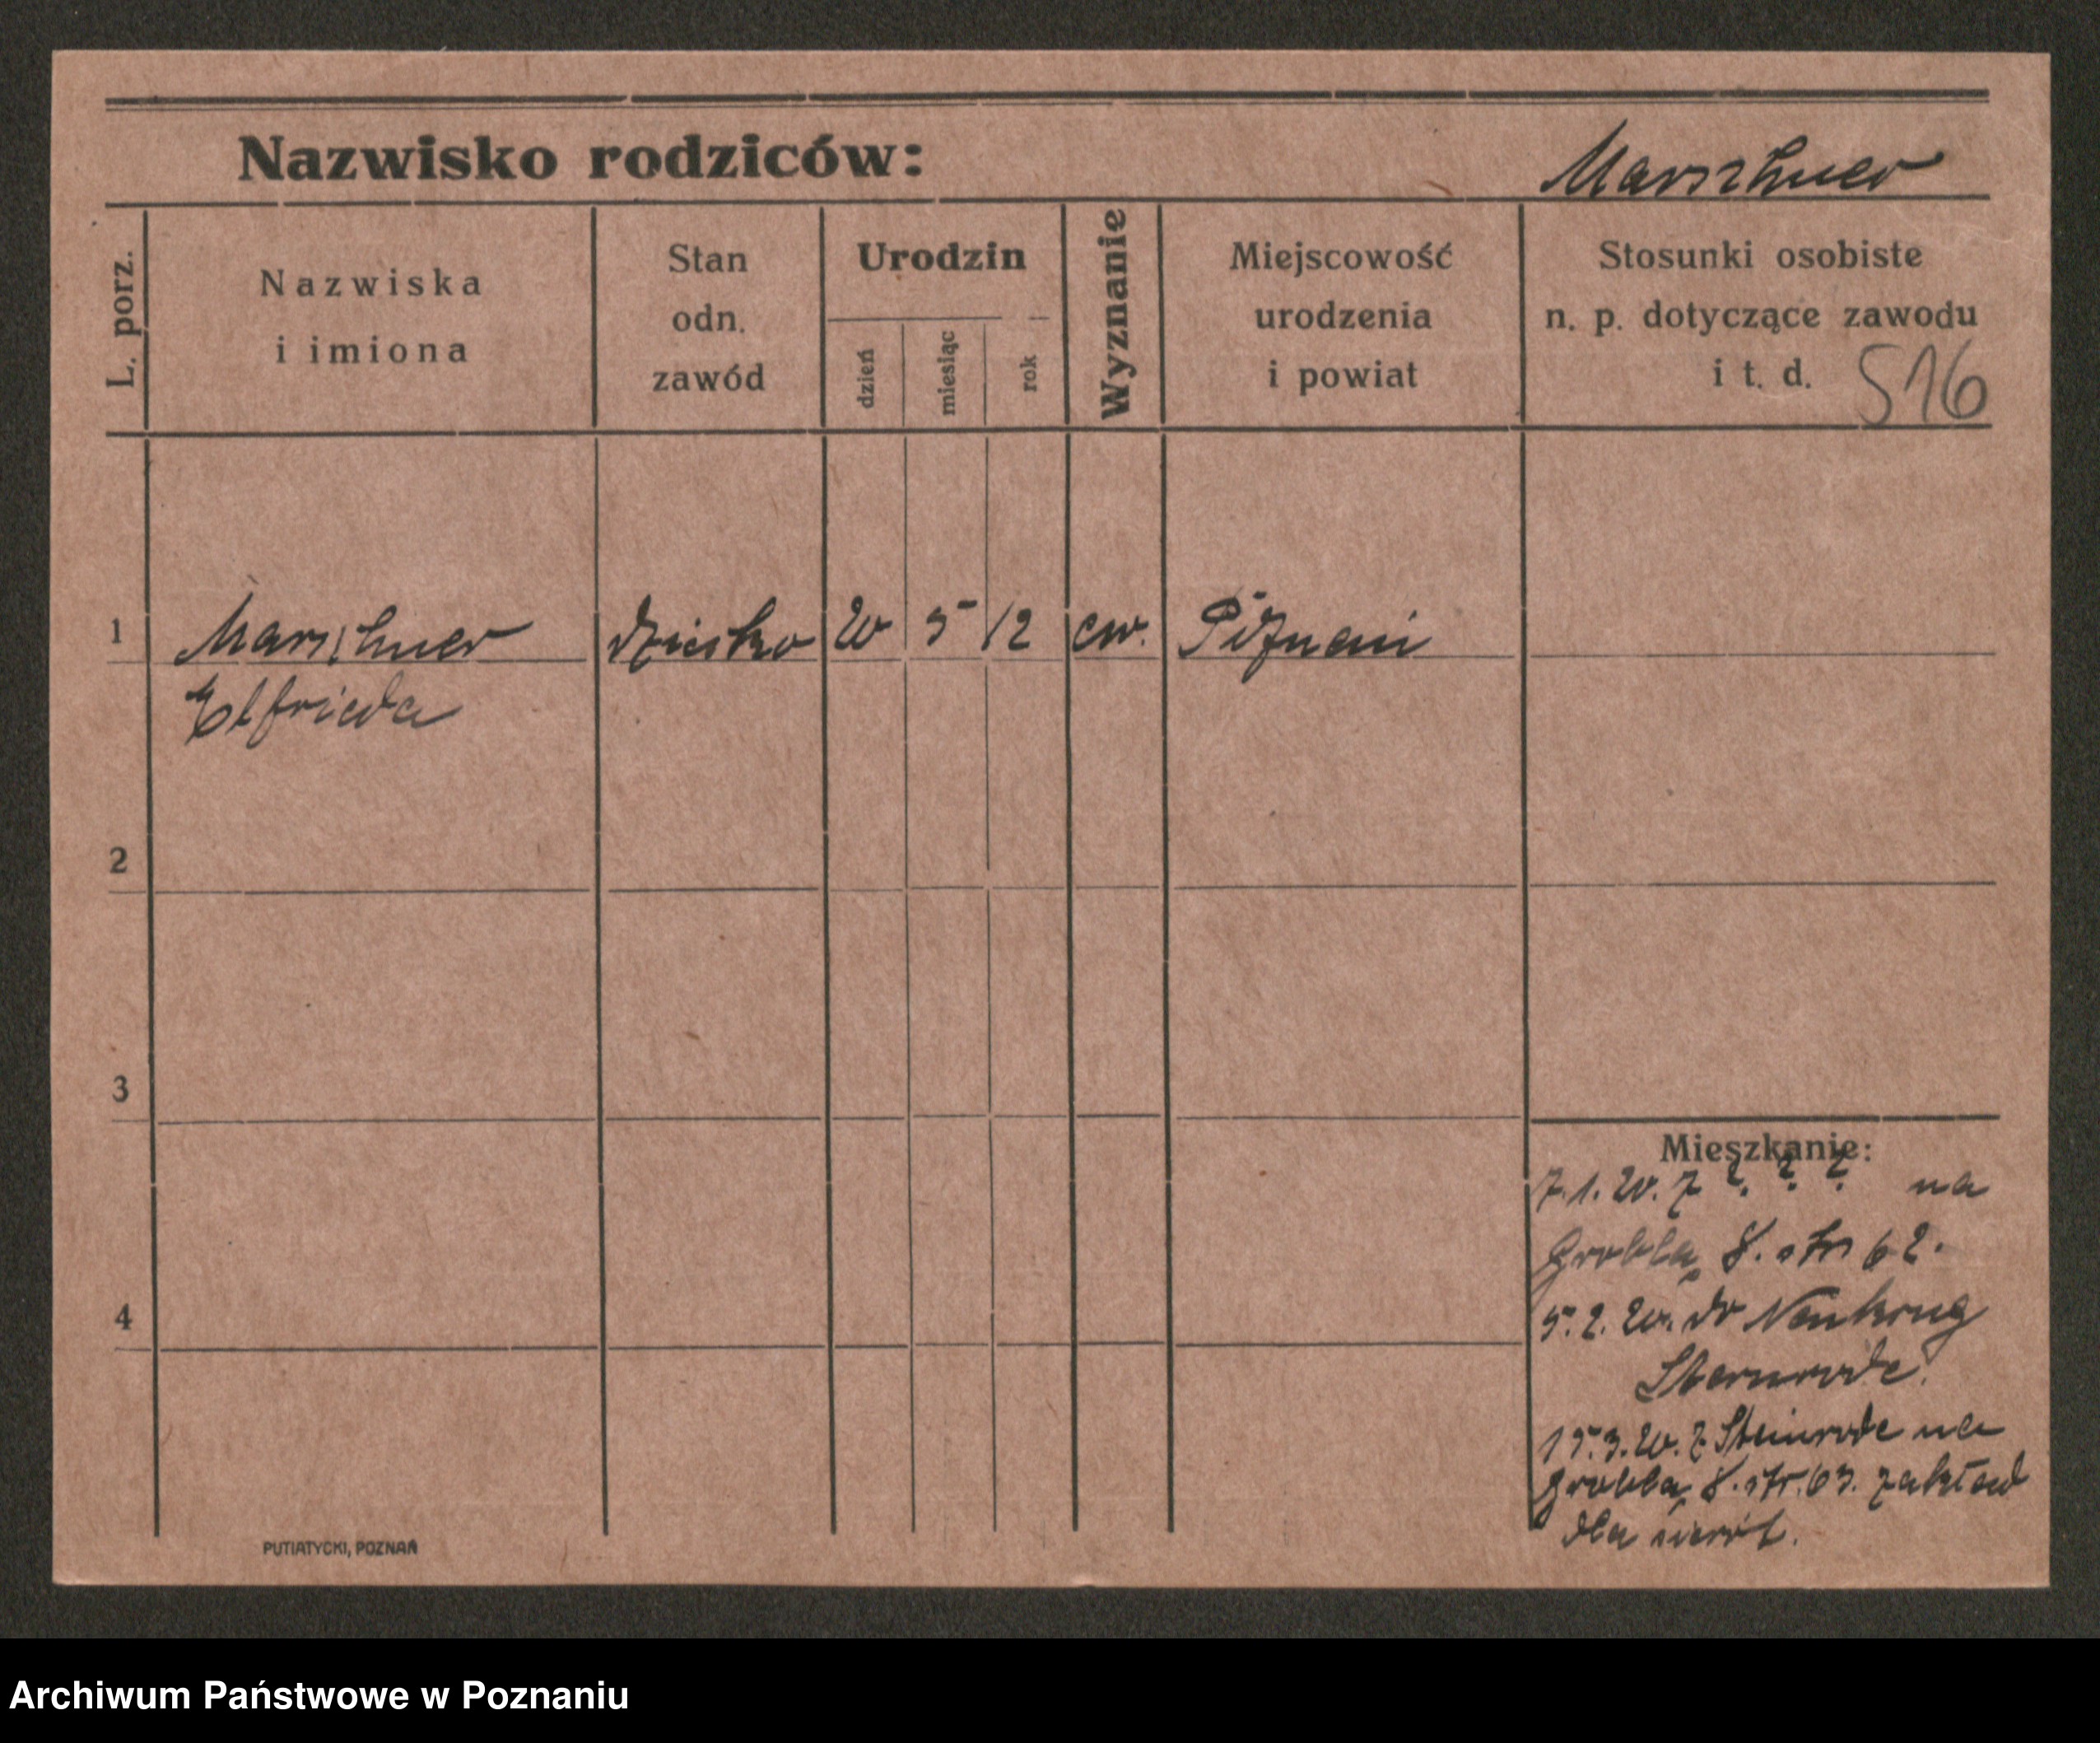 Nazwisko rodziców: Marschner
L. porz.
Nazwiska
i imiona
Stan
odn.
zawód
Urodzin
dzień
miesiąc
rok
Wyznanie
Miejscowość
urodzenia
i powiat
Stosunki osobiste
n. p. dotyczące zawodu
i t. d.
516
1 Marschner dziecko 20 5 12 ew. Poznań
Elfrieda
2
3
4
Mieszkanie:
7.1.20. z ? ? ? na
Groblą 8. str 62.
5.2.20. do Neukrug
15.3.20. z Steinrode na
Groblą 8. str. 63. zakład
dla sierót.
PUTIATYCKI, POZNAŃ
Archiwum Państwowe w Poznaniu